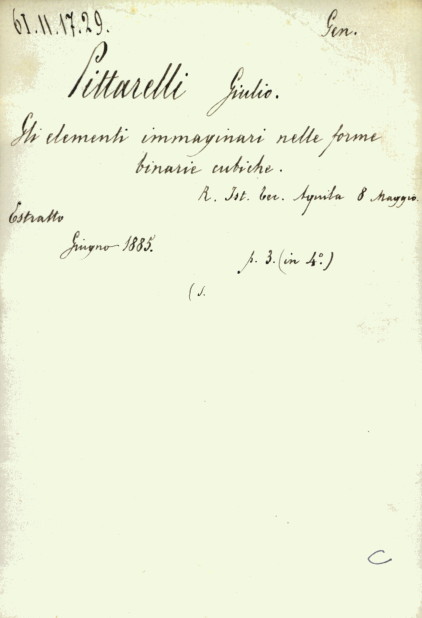 61.11.17.29.
Gen.
Pittarelli Giulio.
Gli elementi immaginari nelle forme
binarie cubiche.
R. Ist. tec. Aquila 8 Maggio.
Estratto
Giugno 1885.
p. 3. (in 4º.)
(s.
C